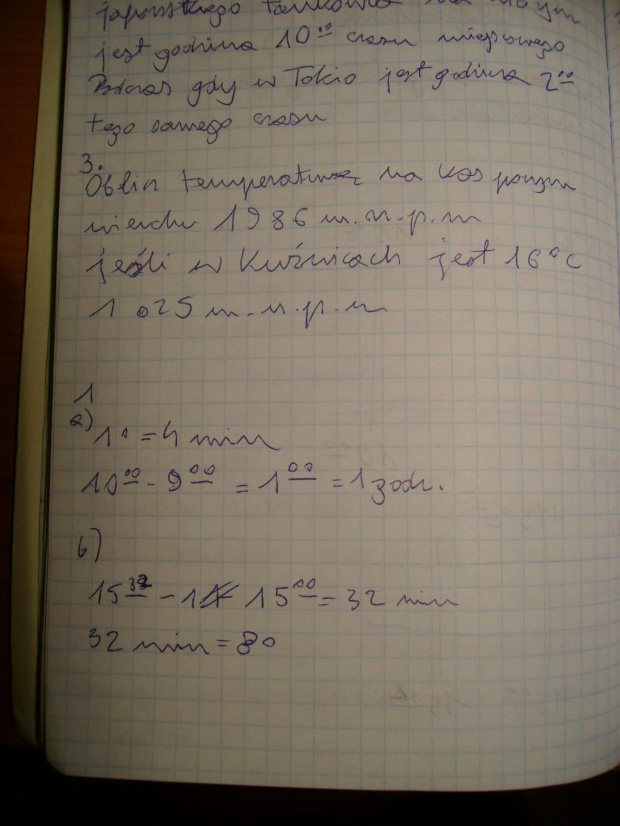 japońskiego tankowca na
jest godzina 10⁰⁰ czasu miejscowego
Podczas gdy w Tokio jest godzina 2⁰⁰
tego samego czasu
3.
Oblicz temperaturę na Kasprowym
wierchu 1986 m.n.p.m
jeśli w Kuźnicach jest 16°C
1025 m.n.p.m
1
a)
1° = 4 min
10⁰⁰ - 9⁰⁰ = 1⁰⁰ = 1 godz.
b)
15³² - 15⁰⁰ = 32 min
32 min = 8°